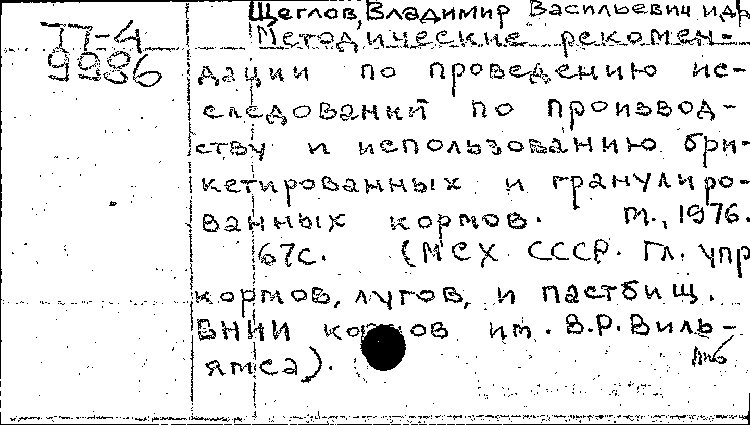 Щеглов, Владимир Васильевич и др
П-4
9986
Методические рекомен-
дации по проведению ис-
следований по производ-
ству и использованию бри-
кетированных и гранулиро-
ванных кормов. М., 1976.
67с. (МСХ СССР. Гл. упр
кормов, лугов, и пастбищ.
ВНИИ кормов им. В.Р. Виль-
ямса).